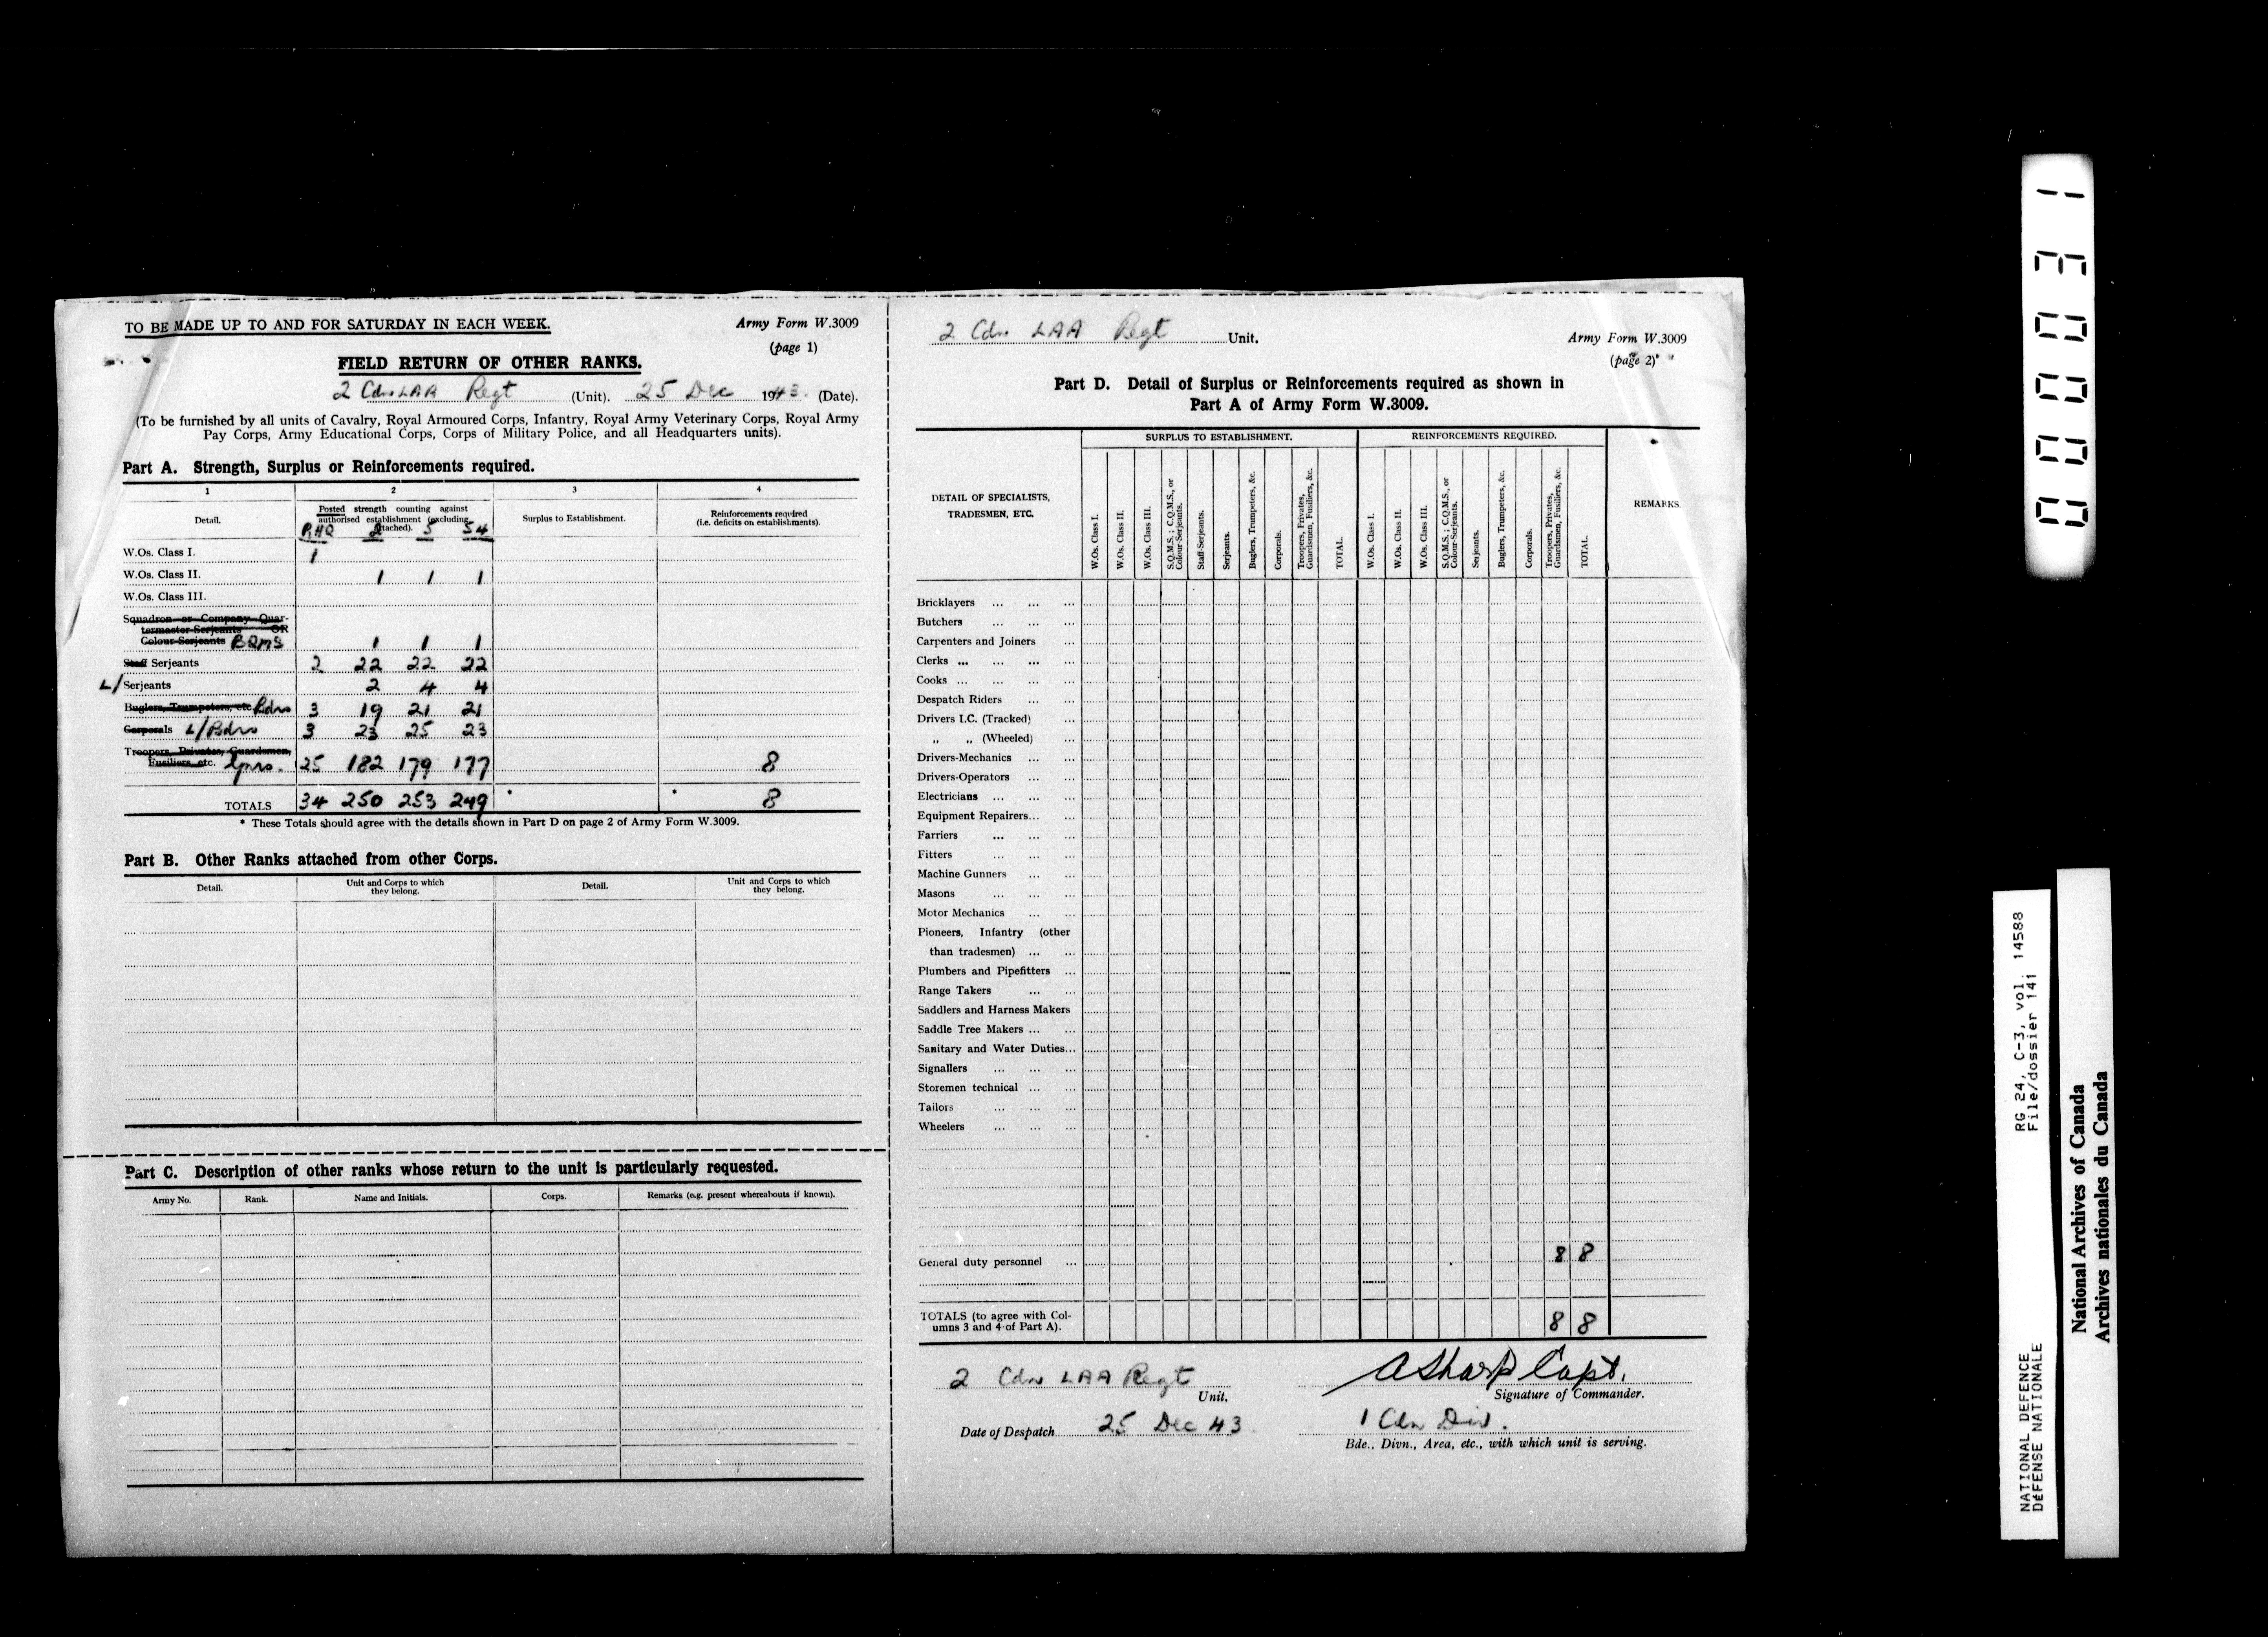 TO BE MADE UP TO AND FOR SATURDAY IN EACH WEEK.
Army Form W.3009
(page 1)
FIELD RETURN OF OTHER RANKS.
2 Cdn LAA Regt (Unit). 25 Dec 1943. (Date).
(To be furnished by all units of Cavalry, Royal Armoured Corps, Infantry, Royal Army Veterinary Corps, Royal Army
Pay Corps, Army Educational Corps, Corps of Military Police, and all Headquarters units).
Part A. Strength, Surplus or Reinforcements required.
1 2 3 4
Detail.
Posted strength counting against
authorised establishment (excluding
attached).
RHQ 2 5 54
Surplus to Establishment.
Reinforcements required
(i.e. deficits on establishments).
W.Os. Class I. 1
W.Os. Class II. 1 1 1
W.Os. Class III.
Squadron or Company Quar-
termaster-Serjeants OR
Colour-Serjeants BQMS 1 1 1
Staff Serjeants 2 22 22 22
L/Serjeants 2 4 4
Buglers, Trumpeters, etc Bdrs 3 19 21 21
Corporals L/Bdrs 3 23 25 23
Troopers, Privates, Guardsmen,
Fusiliers, etc. Gnrs. 25 182 179 177 8
TOTALS 34 250 253 249 * * 8
* These Totals should agree with the details shown in Part D on page 2 of Army Form W.3009.
Part B. Other Ranks attached from other Corps.
Detail.
Unit and Corps to which
they belong.
Detail.
Unit and Corps to which
they belong.
Part C. Description of other ranks whose return to the unit is particularly requested.
Army No. Rank. Name and Initials. Corps. Remarks (e.g. present whereabouts if known).
2 Cdn LAA Regt Unit.
Army Form W.3009
(page 2)
Part D. Detail of Surplus or Reinforcements required as shown in
Part A of Army Form W.3009.
DETAIL OF SPECIALISTS,
TRADESMEN, ETC.
SURPLUS TO ESTABLISHMENT.
W.Os. Class I.
W.Os. Class II.
W.Os. Class III.
S.Q.M.S.; C.Q.M.S., or
Colour-Serjeants.
Staff-Serjeants.
Serjeants.
Buglers, Trumpeters, &c.
Corporals.
Troopers, Privates,
Guardsmen, Fusiliers, &c.
TOTAL.
REINFORCEMENTS REQUIRED.
W.Os. Class I.
W.Os. Class II.
W.Os. Class III.
S.Q.M.S.; C.Q.M.S., or
Colour-Serjeants.
Serjeants.
Buglers, Trumpeters, &c.
Corporals.
Troopers, Privates,
Guardsmen, Fusiliers, &c.
TOTAL.
REMARKS.
Bricklayers ... ... ...
Butchers ... ... ...
Carpenters and Joiners ...
Clerks ... ... ... ...
Cooks ... ... ... ...
Despatch Riders ... ...
Drivers I.C. (Tracked) ...
„ „ (Wheeled) ...
Drivers-Mechanics ... ...
Drivers-Operators ... ...
Electricians ... ... ...
Equipment Repairers... ...
Farriers ... ... ...
Fitters ... ... ...
Machine Gunners ... ...
Masons ... ... ...
Motor Mechanics ... ...
Pioneers, Infantry (other
than tradesmen) ... ...
Plumbers and Pipefitters ...
Range Takers ... ...
Saddlers and Harness Makers
Saddle Tree Makers ... ...
Sanitary and Water Duties...
Signallers ... ... ...
Storemen technical ... ...
Tailors ... ... ...
Wheelers ... ... ...
General duty personnel ... 8 8
TOTALS (to agree with Col-
umns 3 and 4 of Part A). 8 8
2 Cdn LAA Regt
Unit.
A Sharp Capt.
Signature of Commander.
Date of Despatch 25 Dec 43
1 Cdn Div.
Bde., Divn., Area, etc., with which unit is serving.
000031
NATIONAL DEFENCE
DÉFENSE NATIONALE
RG 24, C-3, vol. 14588
File/dossier 141
National Archives of Canada
Archives nationales du Canada